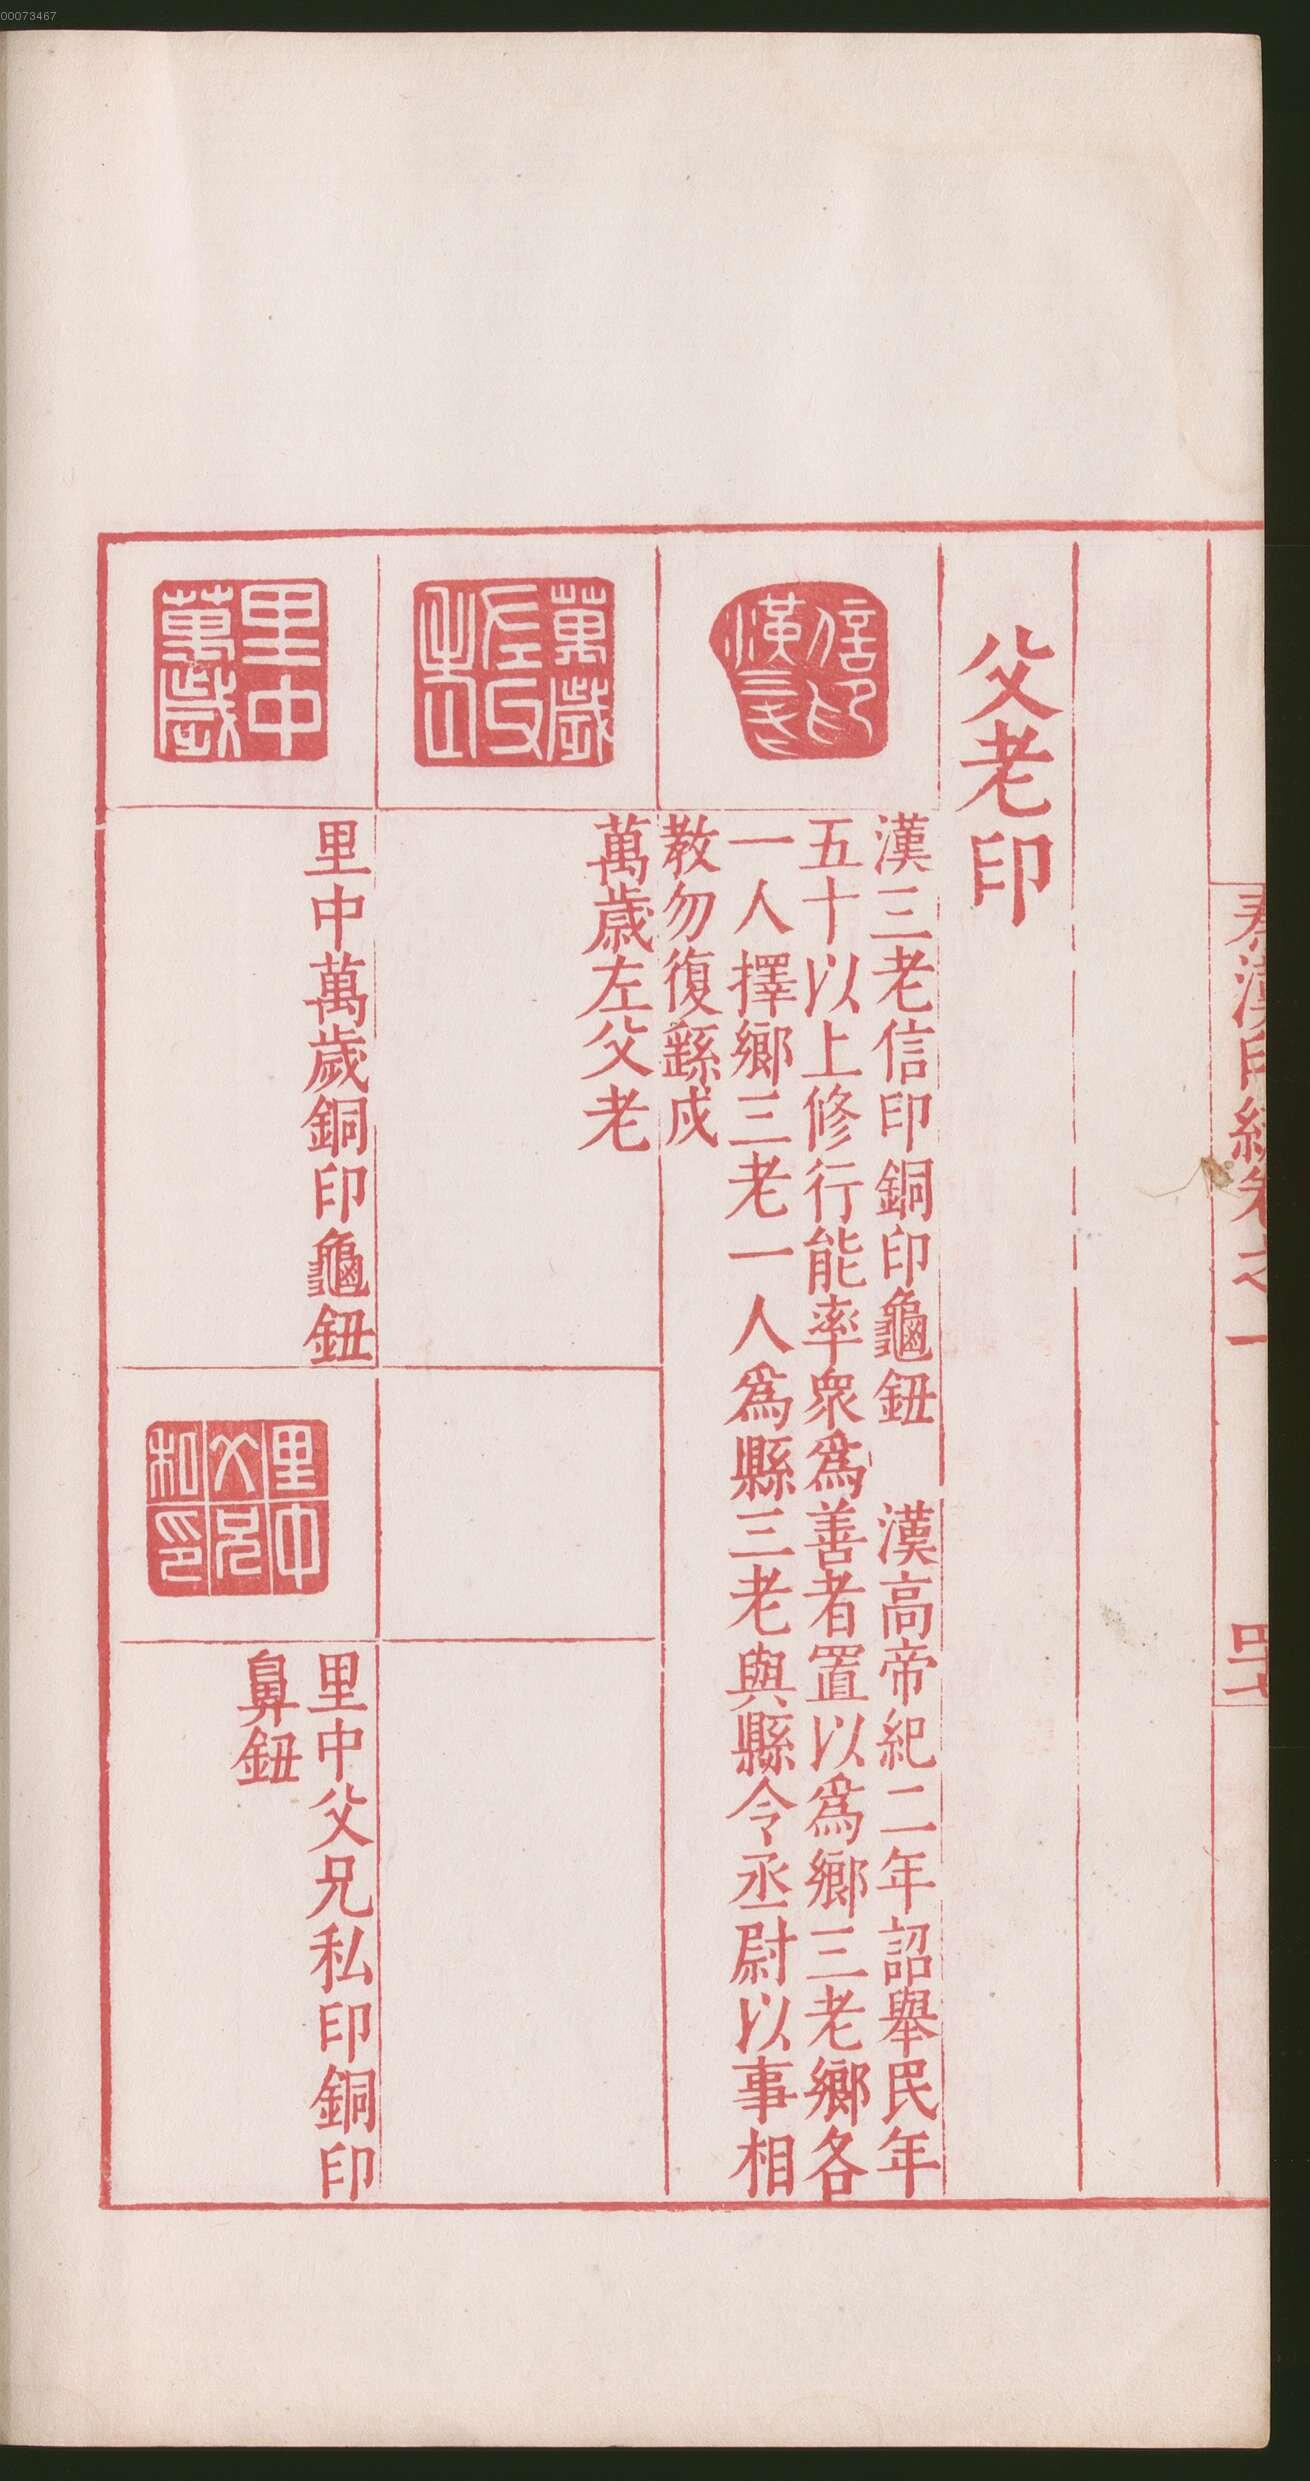 00073467
秦漢印統卷之一
四十七
父老印
信印漢三老
漢三老信印銅印龜鈕　漢高帝紀二年詔舉民年
五十以上修行能率衆爲善者置以爲鄉三老鄉各
一人擇鄉三老一人爲縣三老與縣令丞尉以事相
教勿復繇戍
萬歲左父老
萬歲左父老
里中萬歲
里中萬歲銅印龜鈕
里中父兄私印
里中父兄私印銅印
鼻鈕